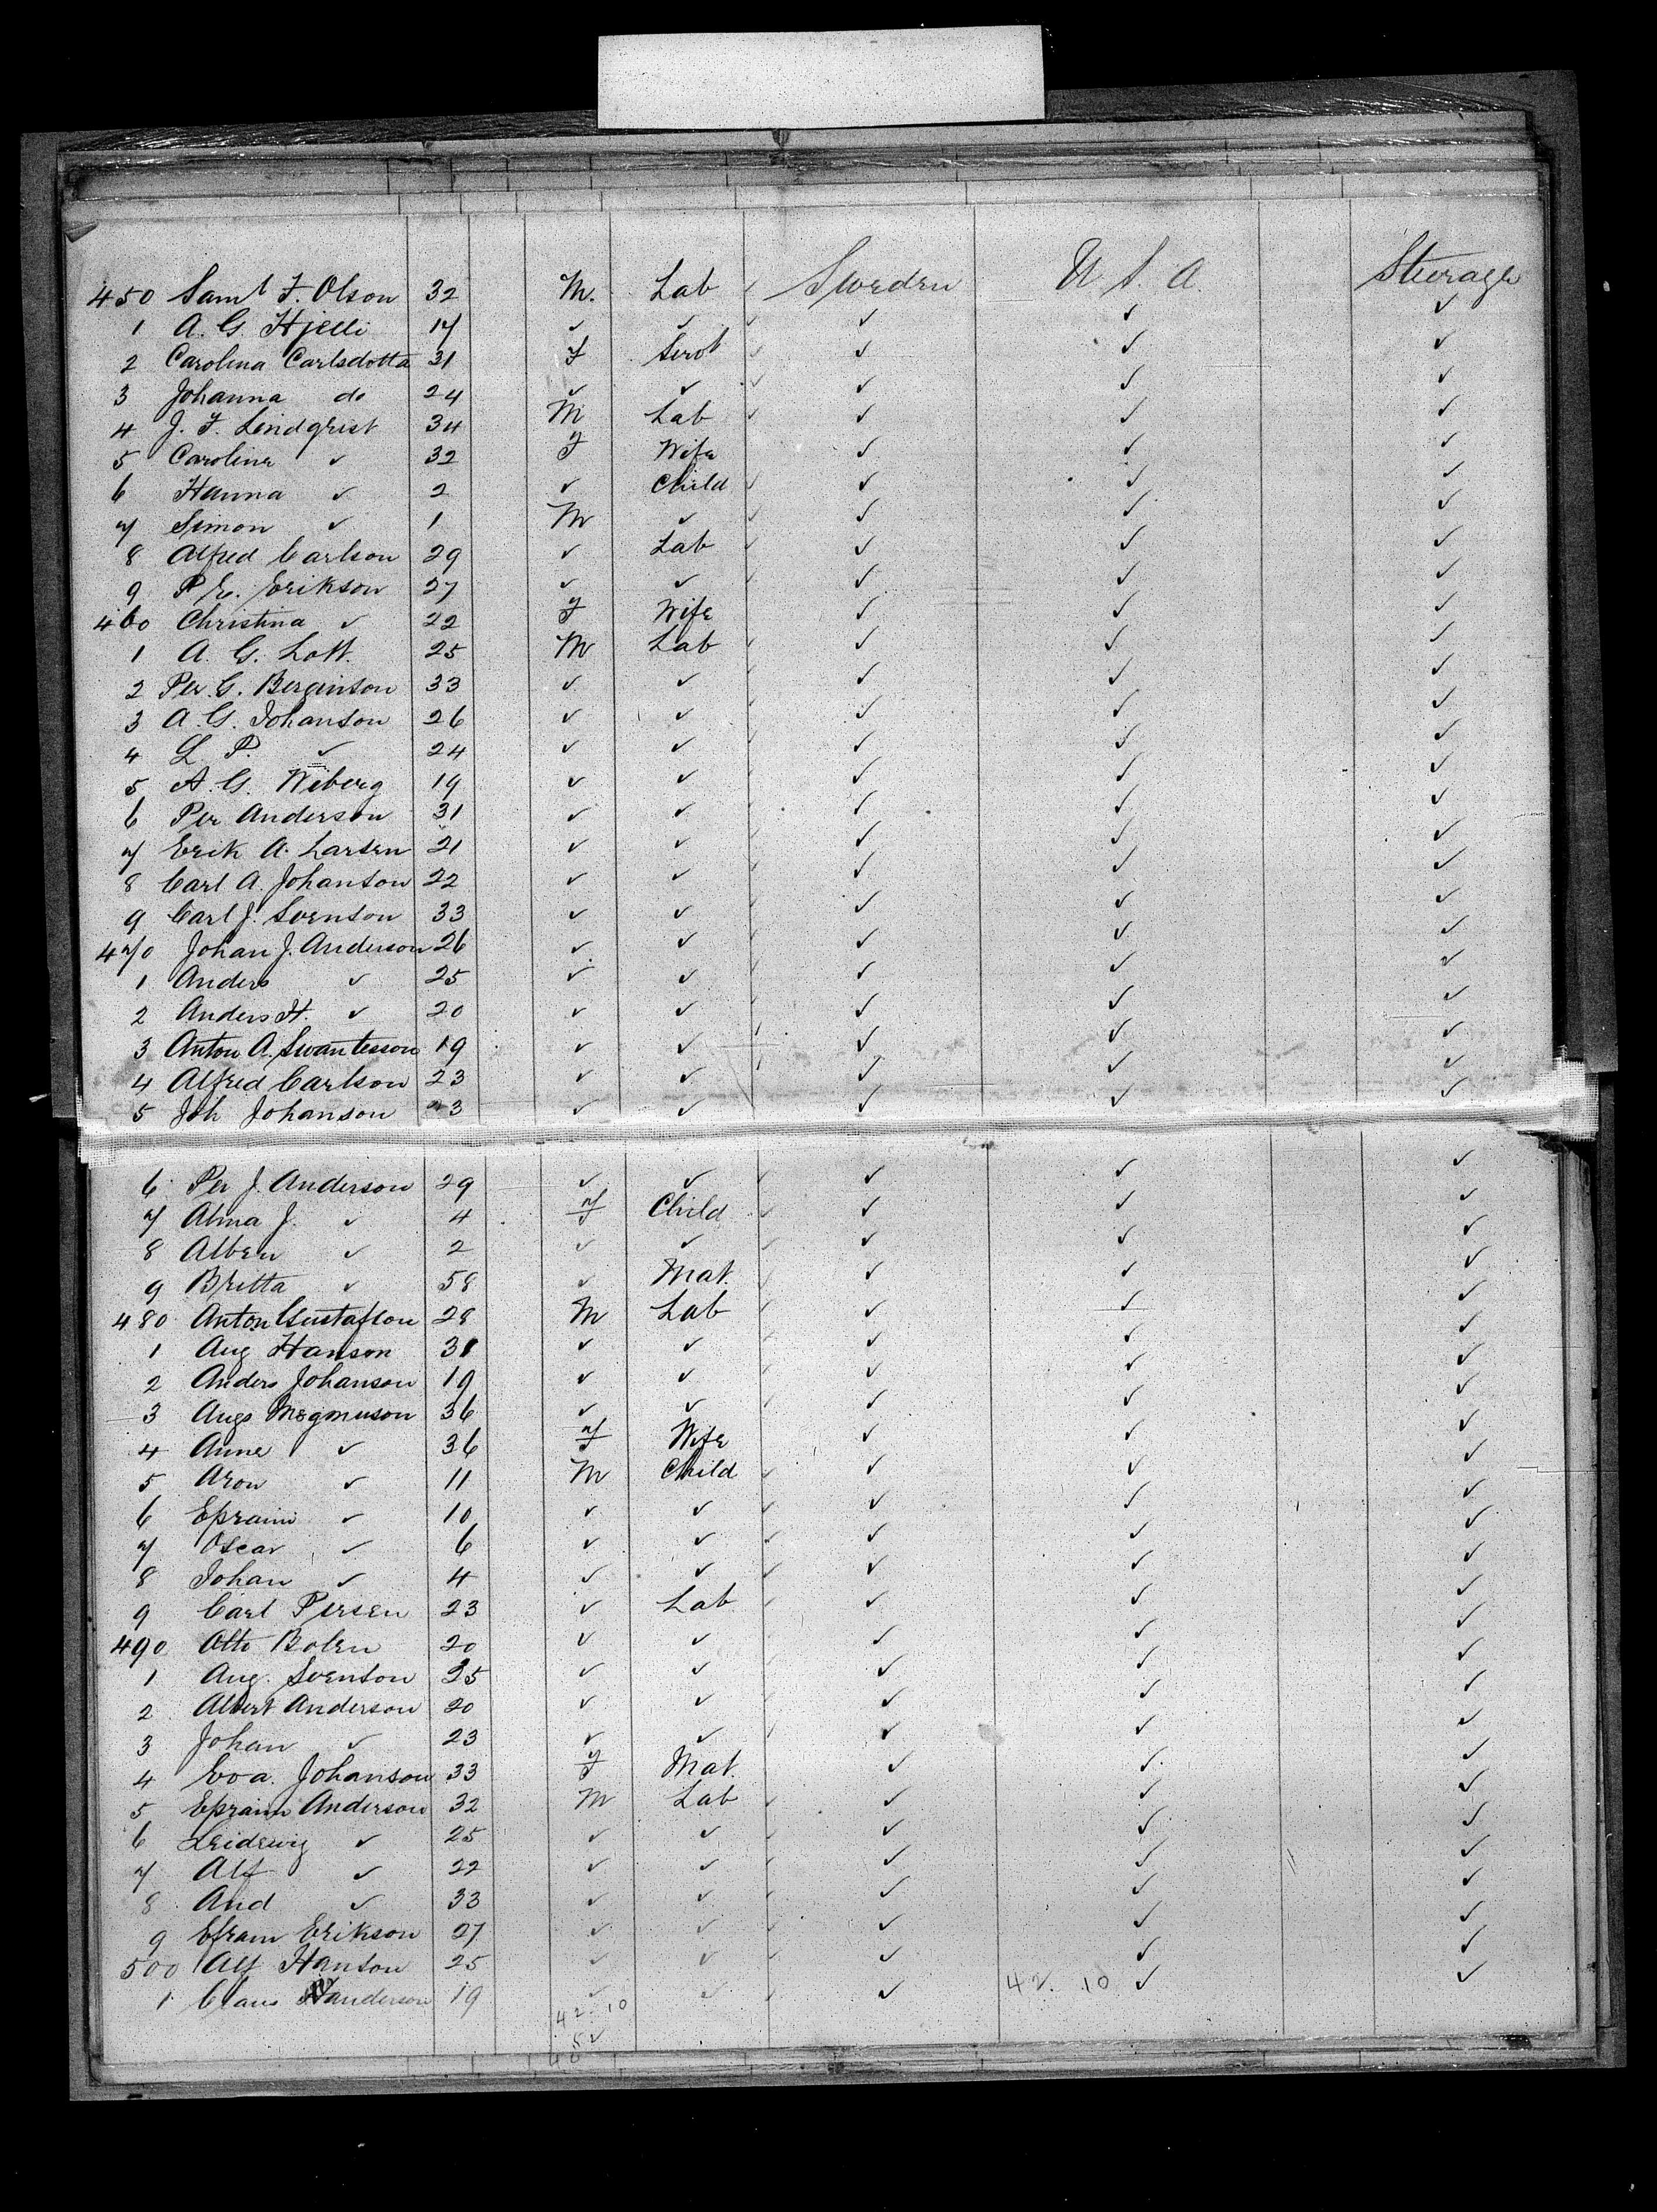 450 Saml F. Olson 32 M. Lab ✓ Sweden U S. A. Steerage
1 A. G. Hjelli 17 ✓ ✓ ✓ ✓ ✓ ✓
2 Carolina Carlsdotta 31 F Servt ✓ ✓ ✓ ✓
3 Johanna do 24 ✓ ✓ ✓ ✓ ✓ ✓
4 J. F. Lindqrist 34 M Lab ✓ ✓ ✓ ✓
5 Carolina ✓ 32 F Wife ✓ ✓ ✓
6 Hanna ✓ 2 ✓ Child ✓ ✓ ✓ ✓
7 Simon ✓ 1 M ✓ ✓ ✓ ✓ ✓
8 Alfred Carlson 29 ✓ Lab ✓ ✓ ✓ ✓
9 P E. Erikson 27 ✓ ✓ ✓ ✓ ✓ ✓
460 Christina ✓ 22 F Wife ✓ ✓ ✓
1 A. G. Lott. 25 M Lab ✓ ✓ ✓ ✓
2 Per. G. Berginson 33 ✓ ✓ ✓ ✓ ✓ ✓
3 A. G. Johanson 26 ✓ ✓ ✓ ✓ ✓ ✓
4 L P. ✓ 24 ✓ ✓ ✓ ✓ ✓ ✓
5 A. G. Weberg 19 ✓ ✓ ✓ ✓ ✓ ✓
6 Per Anderson 31 ✓ ✓ ✓ ✓ ✓ ✓
7 Erik A. Larsen 21 ✓ ✓ ✓ ✓ ✓ ✓
8 Carl A. Johanson 22 ✓ ✓ ✓ ✓ ✓ ✓
9 Carl J. Svenson 33 ✓ ✓ ✓ ✓ ✓ ✓
470 Johan J. Anderson 26 ✓ ✓ ✓ ✓ ✓ ✓
1 Anders ✓ 25 ✓ ✓ ✓ ✓ ✓ ✓
2 Anders H. ✓ 20 ✓ ✓ ✓ ✓ ✓ ✓
3 Anton A. Swantesson 19 ✓ ✓ ✓ ✓ ✓ ✓
4 Alfred Carlson 23 ✓ ✓ ✓ ✓ ✓ ✓
5 Joh Johanson 23 ✓ ✓ ✓ ✓ ✓
6 Per J. Anderson 29 ✓ ✓ ✓ ✓ ✓ ✓
7 Alma J. ✓ 4 F Child ✓ ✓ ✓ ✓
8 Alben ✓ 2 ✓ ✓ ✓ ✓ ✓ ✓
9 Britta ✓ 58 ✓ Mat. ✓ ✓ ✓ ✓
480 Anton Gustafson 28 M Lab ✓ ✓ ✓ ✓
1 Aug Hanson 31 ✓ ✓ ✓ ✓ ✓ ✓
2 Anders Johanson 19 ✓ ✓ ✓ ✓ ✓ ✓
3 Augs Magnuson 36 ✓ ✓ ✓ ✓ ✓ ✓
4 Anne ✓ 36 F Wife ✓ ✓ ✓
5 Aron ✓ 11 M Child ✓ ✓ ✓ ✓
6 Epraim ✓ 10 ✓ ✓ ✓ ✓ ✓ ✓
7 Oscar ✓ 6 ✓ ✓ ✓ ✓ ✓ ✓
8 Johan ✓ 4 ✓ ✓ ✓ ✓ ✓ ✓
9 Carl Persen 23 ✓ Lab ✓ ✓ ✓ ✓
490 Otto Bolen 20 ✓ ✓ ✓ ✓ ✓ ✓
1 Aug. Svenson 25 ✓ ✓ ✓ ✓ ✓ ✓
2 Albert Anderson 20 ✓ ✓ ✓ ✓ ✓ ✓
3 Johan ✓ 23 ✓ ✓ ✓ ✓ ✓ ✓
4 Eva. Johanson 33 F Mat. ✓ ✓ ✓
5 Epraim Anderson 32 M Lab ✓ ✓ ✓ ✓
6 ✓ 25 ✓ ✓ ✓ ✓ ✓ ✓
7 Alf ✓ 22 ✓ ✓ ✓ ✓ ✓ ✓
8 And ✓ 33 ✓ ✓ ✓ ✓ ✓ ✓
9 Efram Erikson 27 ✓ ✓ ✓ ✓ ✓ ✓
500 Alf Hanson 25 ✓ ✓ ✓ ✓ ✓ ✓
1 Claus 19 ✓ ✓ ✓ ✓ 42. 10 ✓ ✓
42. 10